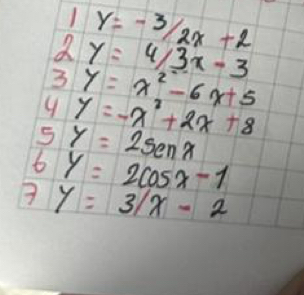 1 Y = -3/2x + 2
2 Y = 4/3x - 3
3 Y = x² - 6x + 5
4 Y = -x² + 2x + 8
5 Y = 2senx
6 Y = 2cosx - 1
7 Y = 3/x - 2